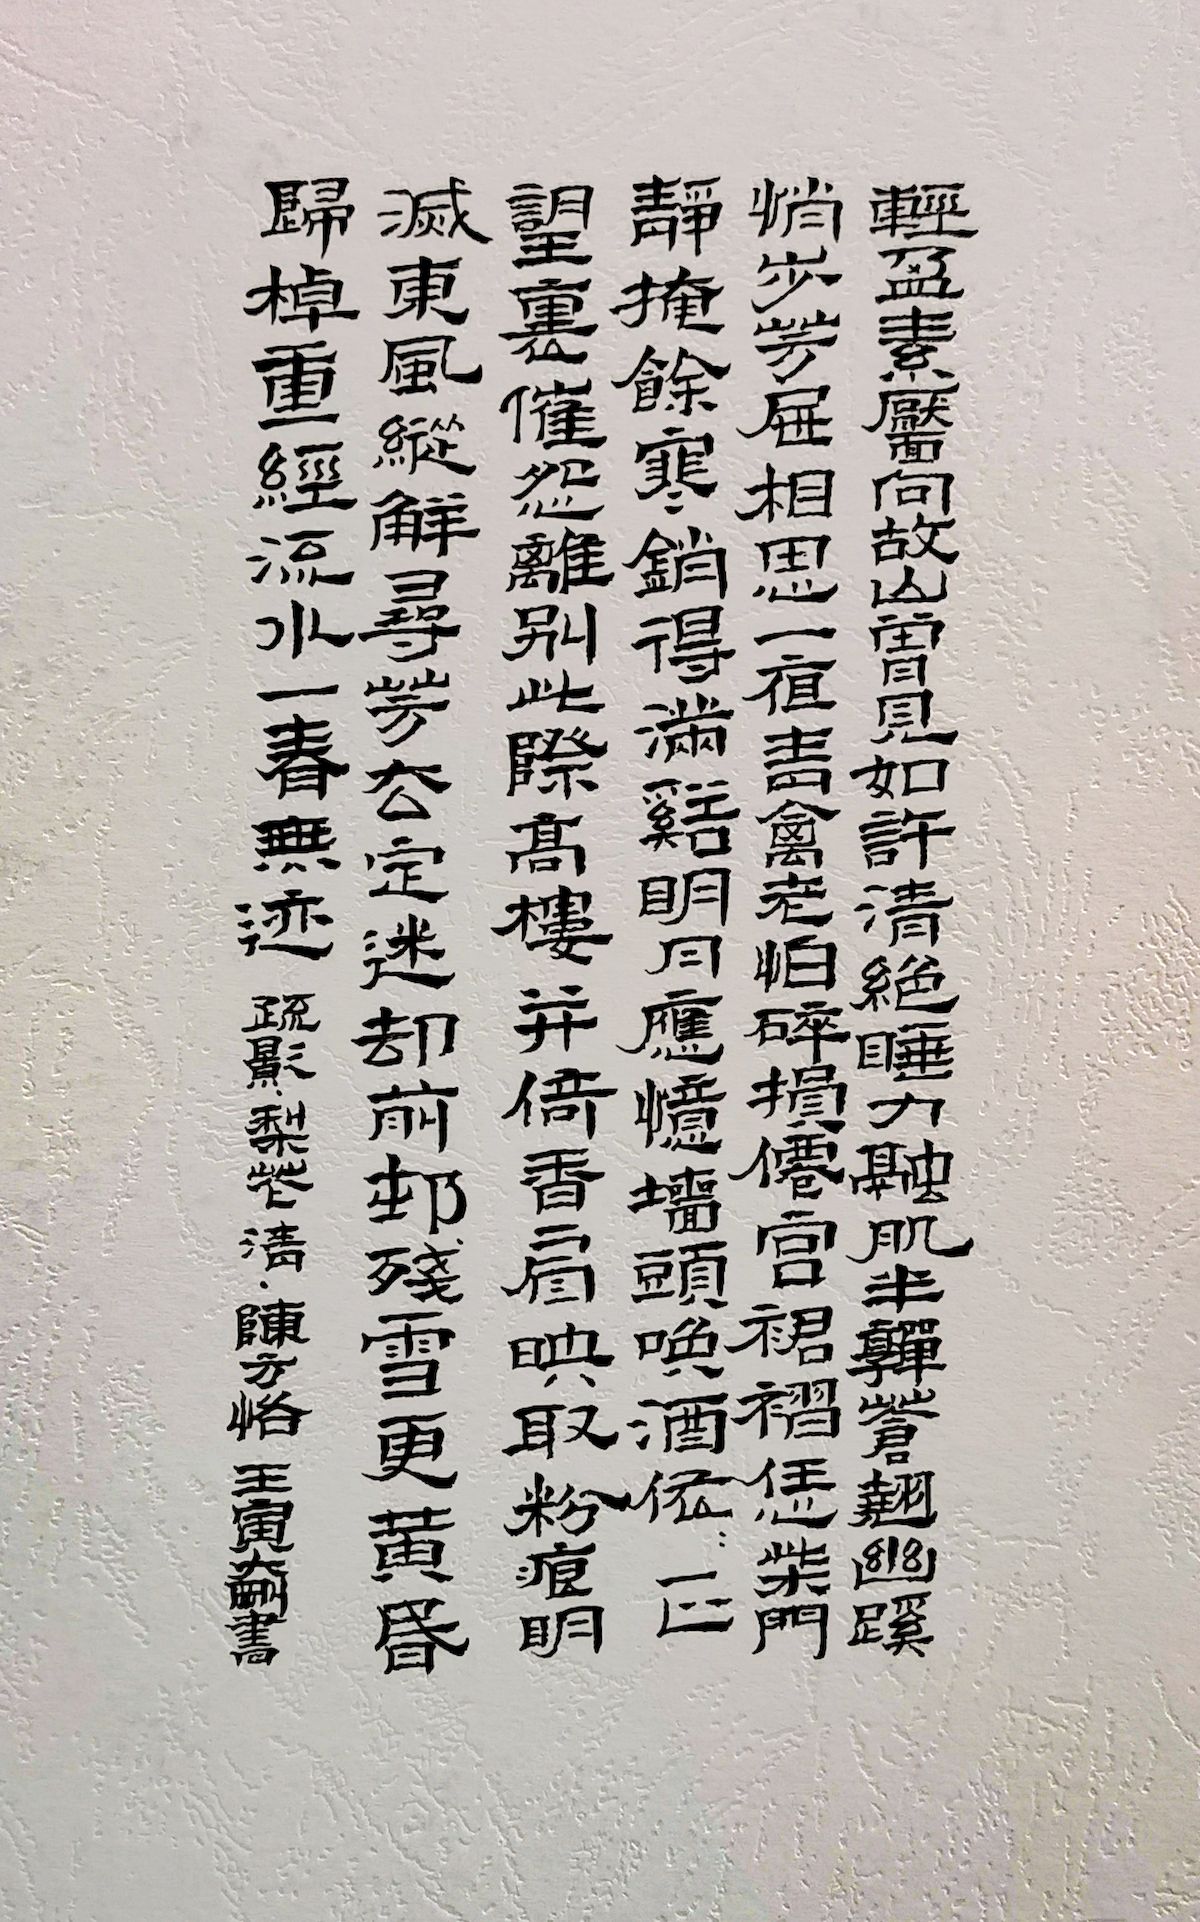 輕盈素靨向故山霄見如許清絕睡力融肌半嚲蒼翹幽蹊
悄步芳屧相思一宿青禽老怕碎損僊宮裙褶恁柴門
靜掩餘寒銷得滿谿明月應憶墻頭喚酒依〻一正
望裏催怨離別此際高樓并倚香肩映取粉痕明
滅東風縱解尋芳去定迷却前邨殘雪更黃昏
歸棹重經流水一春無迹 疏影·梨花 清·陳方恪 王寅 書